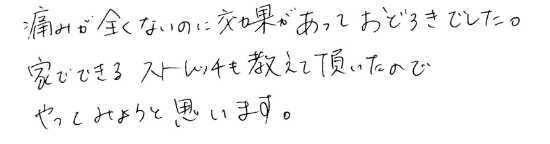 痛みが全くないのに効果があっておどろきでした。
家でできるストレッチも教えて頂いたので
やってみようと思います。